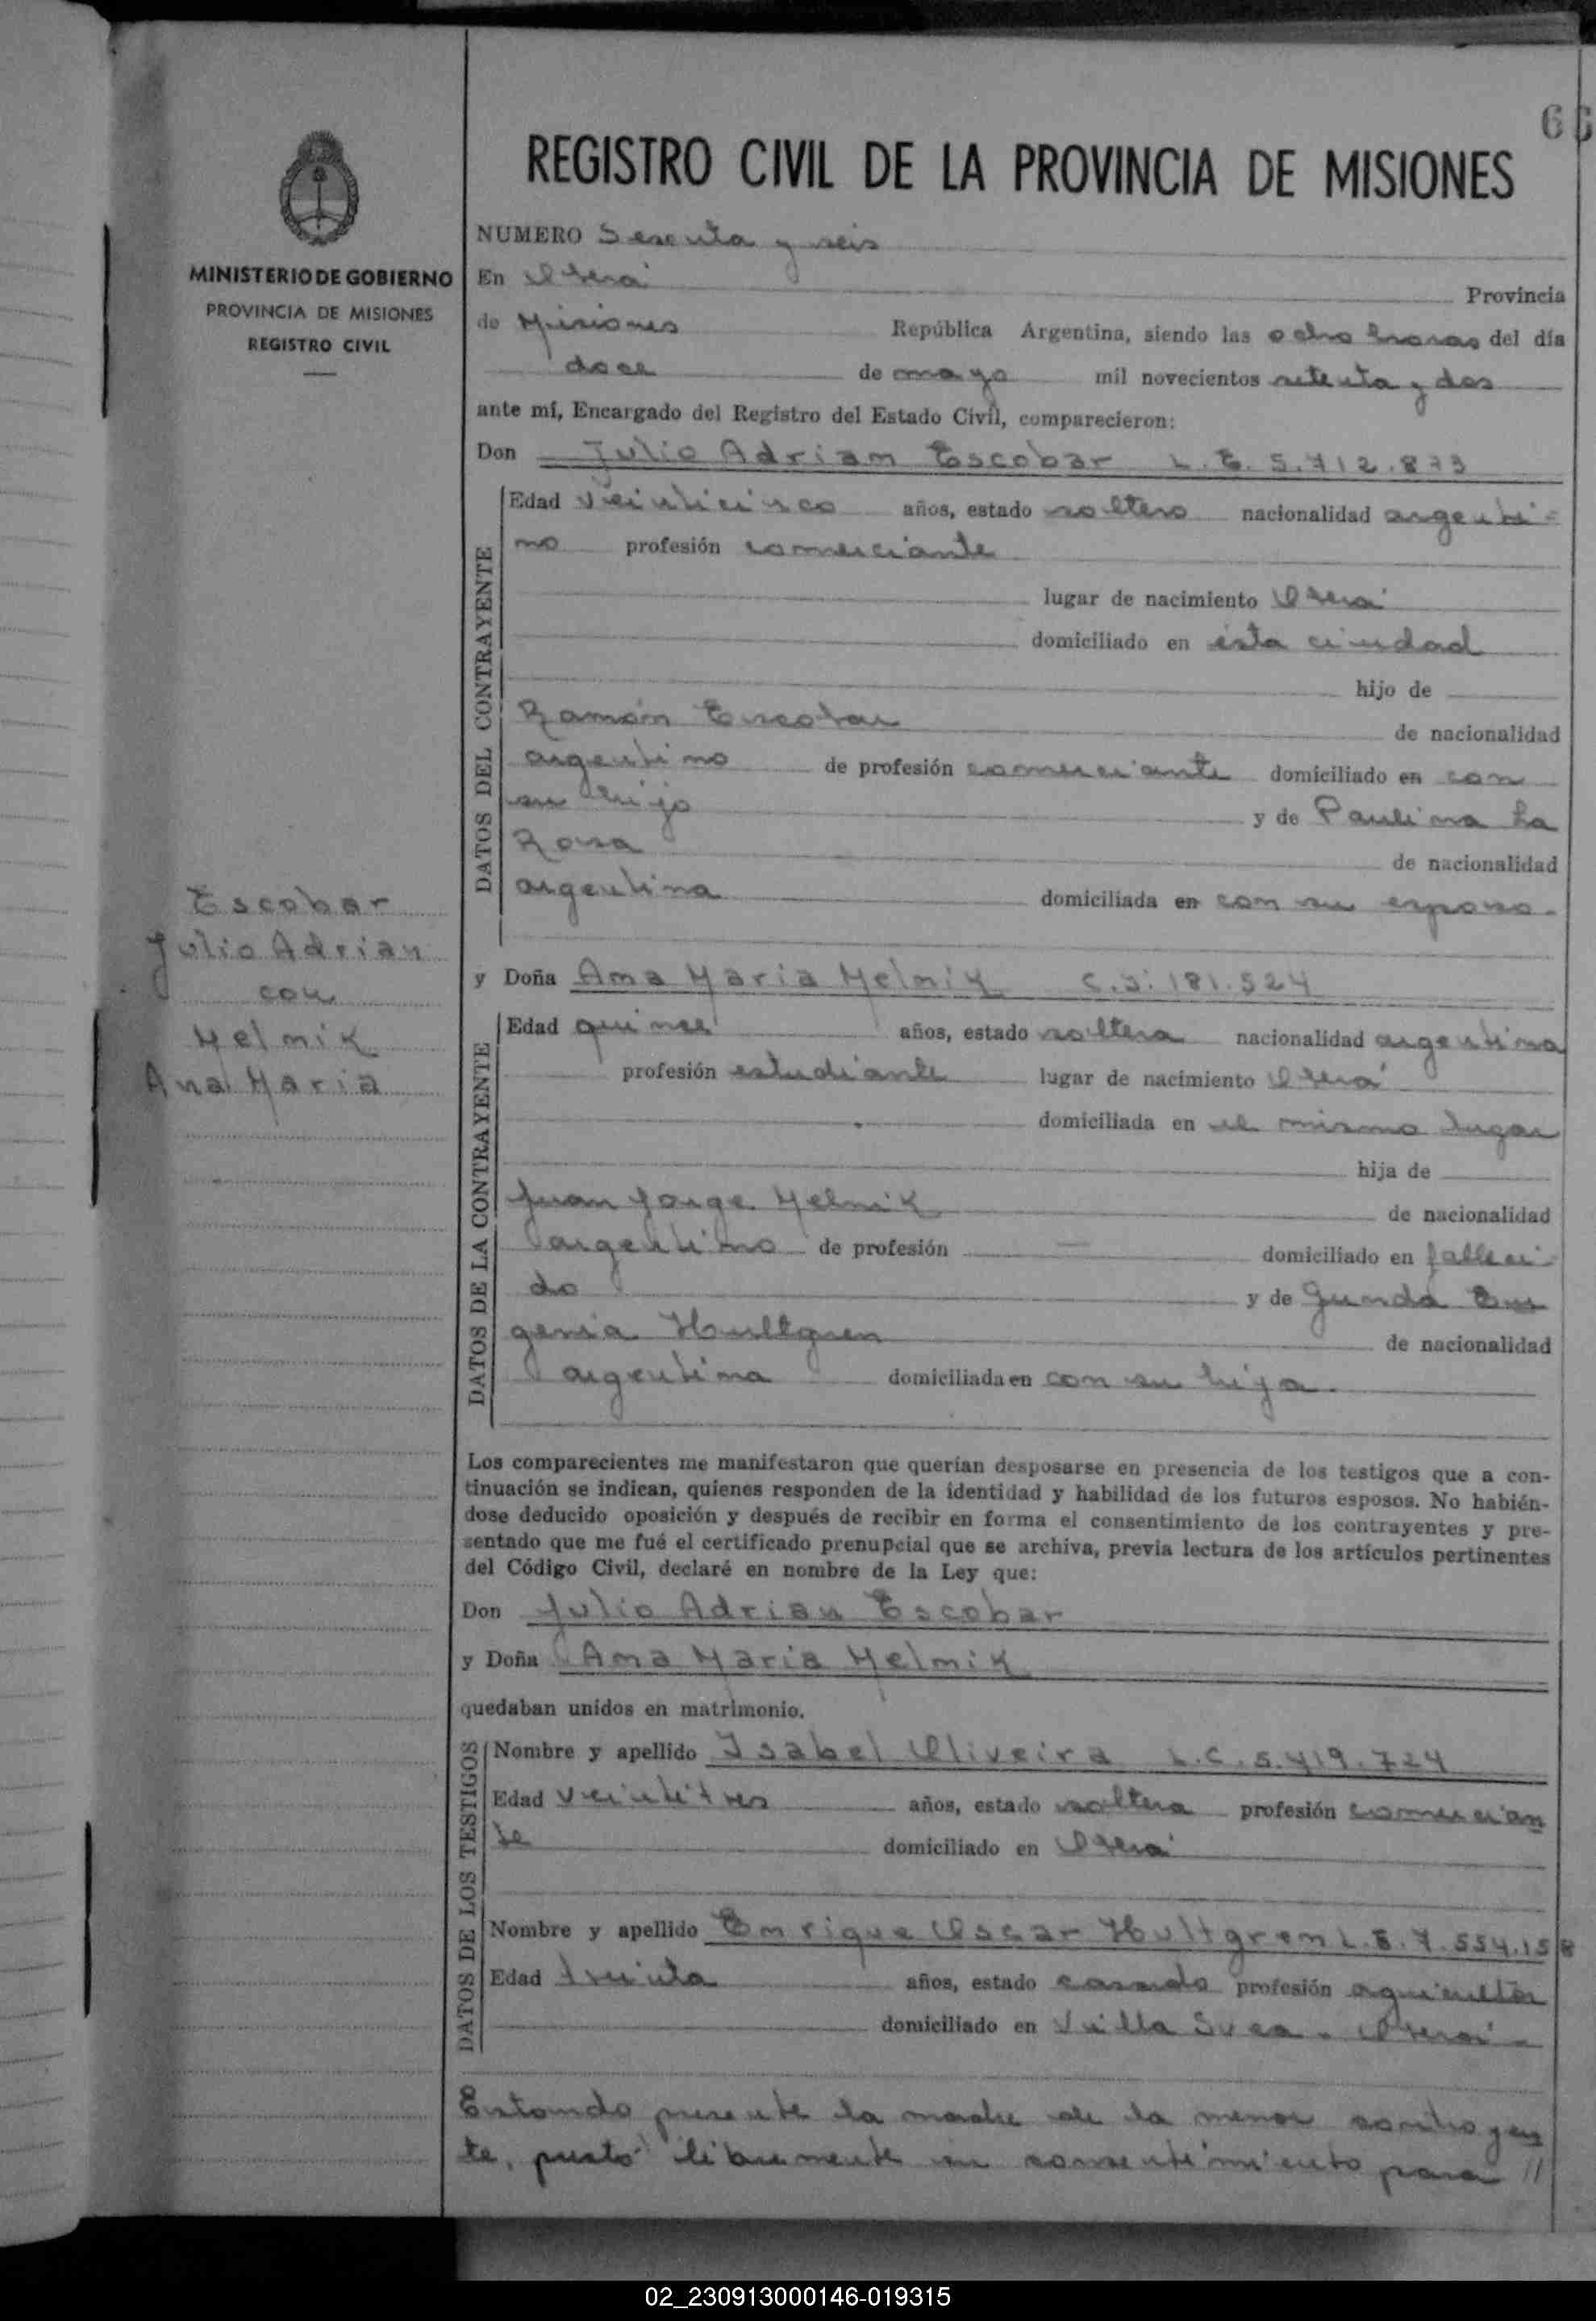 66
REGISTRO CIVIL DE LA PROVINCIA DE MISIONES
MINISTERIO DE GOBIERNO
PROVINCIA DE MISIONES
REGISTRO CIVIL
NUMERO Sesenta y seis
En Oberá Provincia
de Misiones República Argentina, siendo las ocho horas del día
doce de mayo mil novecientos setenta y dos
ante mí, Encargado del Registro del Estado Civil, comparecieron:
Don Julio Adrian Escobar L.E. 5.712.873
DATOS DEL CONTRAYENTE
Edad veinticinco años, estado soltero nacionalidad argenti-
no profesión comerciante
lugar de nacimiento Oberá
domiciliado en ésta ciudad
hijo de
Ramón Escobar de nacionalidad
argentino de profesión comerciante domiciliado en con
su hijo y de Paulina La
Rosa de nacionalidad
argentina domiciliada en con su esposo.
Escobar
Julio Adrian
con
Melnik
Ana Maria
y Doña Ana Maria Melnik C.I. 181.524
DATOS DE LA CONTRAYENTE
Edad quince años, estado soltera nacionalidad argentina
profesión estudiante lugar de nacimiento Oberá
domiciliada en el mismo lugar
hija de
Juan Jorge Melnik de nacionalidad
argentino de profesión — domiciliado en falleci-
do y de Gunda Eu
genia Hultgren de nacionalidad
argentina domiciliada en con su hija.
Los comparecientes me manifestaron que querían desposarse en presencia de los testigos que a con-
tinuación se indican, quienes responden de la identidad y habilidad de los futuros esposos. No habién-
dose deducido oposición y después de recibir en forma el consentimiento de los contrayentes y pre-
sentado que me fué el certificado prenupcial que se archiva, previa lectura de los artículos pertinentes
del Código Civil, declaré en nombre de la Ley que:
Don Julio Adrian Escobar
y Doña Ana Maria Melnik
quedaban unidos en matrimonio.
DATOS DE LOS TESTIGOS
Nombre y apellido Isabel Oliveira L.C. 5.419.724
Edad veintitres años, estado soltera profesión comercian
te domiciliado en Oberá
Nombre y apellido Enrique Oscar Hultgren L.E. 7.554.158
Edad treinta años, estado casado profesión agricultor
domiciliado en Villa Svea - Oberá -
Estando presente la madre de la menor contrayen
te, prestó libremente su consentimiento para //
02_230913000146-019315